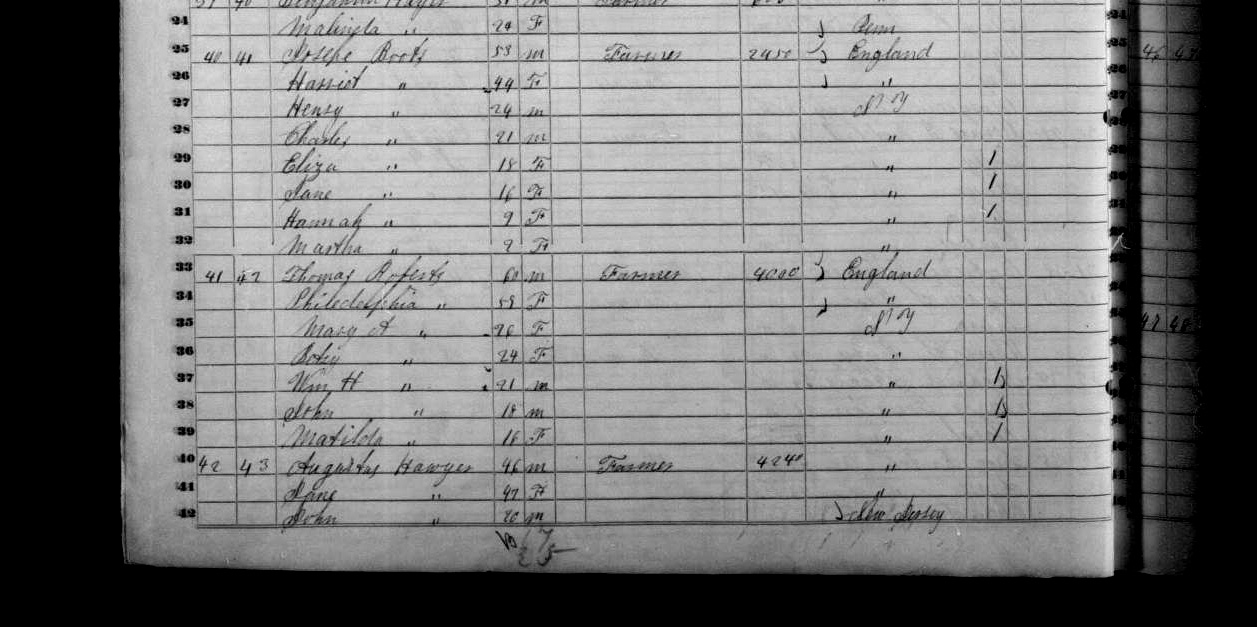 40 Farmer
24 Malinda " 24 F Penn
25 40 41 Joseph Boots 53 m Farmer 2450 England
26 Harriot " 44 F "
27 Henry " 24 m N Y
28 Charles " 21 m "
29 Eliza " 18 F " 1
30 Jane " 16 F " 1
31 Hannah " 9 F " 1
32 Martha " 2 F "
33 41 42 Thomas Roferts 60 m Farmer 4000 England
34 Philedelphia " 58 F "
35 Mary A " 26 F N Y
36 " 24 F "
37 Wm H " 21 m " 1
38 John " 18 m " 1
39 Matilda " 16 F " 1
40 42 43 Augustus Hawyer 46 m Farmer 4240 "
41 Jane " 47 F "
42 John " 20 m New Jersey